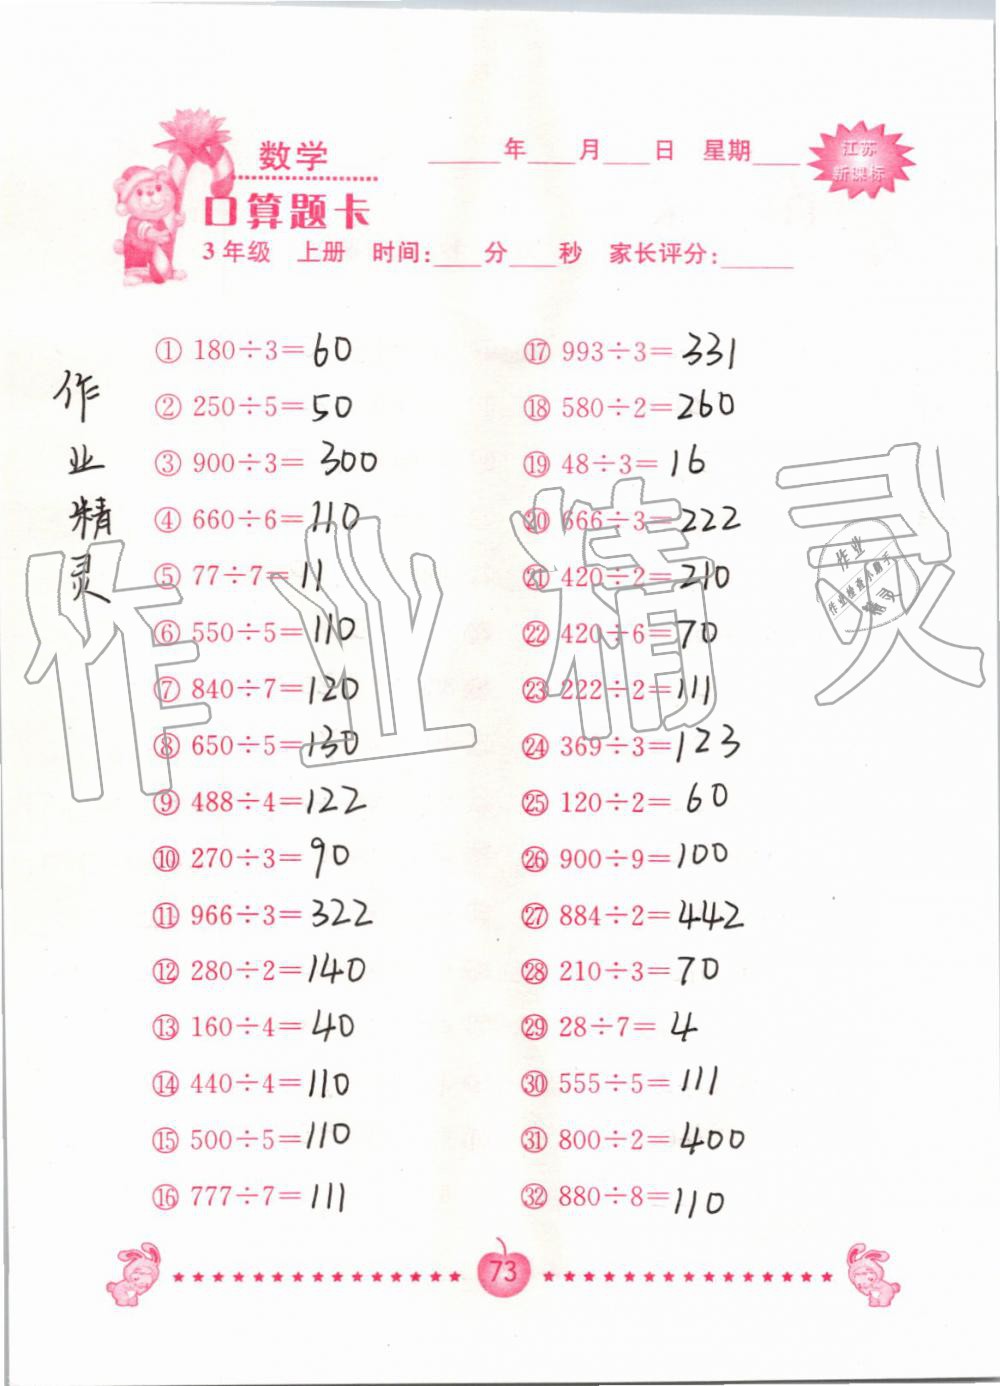 数学
____年____月____日 星期____
江苏
新课标
口算题卡
3年级 上册 时间:____分____秒 家长评分:____
作业精灵
① 180÷3=60
② 250÷5=50
③ 900÷3=300
④ 660÷6=110
⑤ 77÷7=11
⑥ 550÷5=110
⑦ 840÷7=120
⑧ 650÷5=130
⑨ 488÷4=122
⑩ 270÷3=90
⑪ 966÷3=322
⑫ 280÷2=140
⑬ 160÷4=40
⑭ 440÷4=110
⑮ 500÷5=110
⑯ 777÷7=111
⑰ 993÷3=331
⑱ 580÷2=260
⑲ 48÷3=16
⑳ 666÷3=222
㉑ 420÷2=210
㉒ 420÷6=70
㉓ 222÷2=111
㉔ 369÷3=123
㉕ 120÷2=60
㉖ 900÷9=100
㉗ 884÷2=442
㉘ 210÷3=70
㉙ 28÷7=4
㉚ 555÷5=111
㉛ 800÷2=400
㉜ 880÷8=110
作业精灵
作业
作业检查小助手
精灵
73